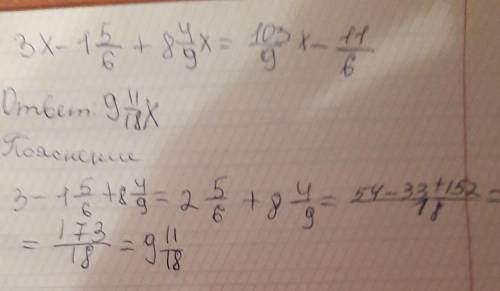 3x - 1 5/6 + 8 4/9 x = 103/9 x - 11/6
Ответ: 9 11/18 x
Пояснение
3 - 1 5/6 + 8 4/9 = 2 5/6 + 8 4/9 = 54-33+152/18 =
= 173/18 = 9 11/18